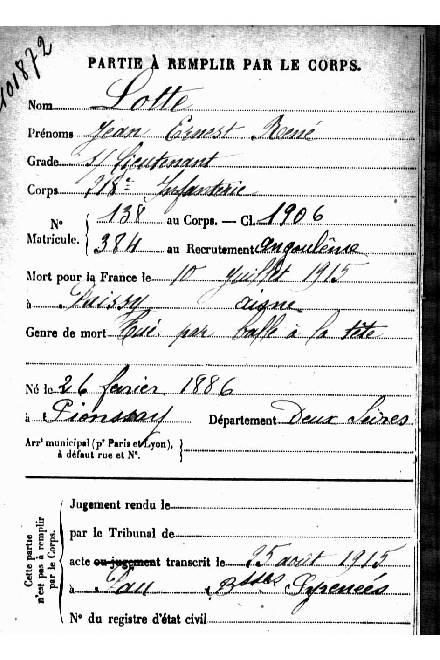 101872
PARTIE À REMPLIR PAR LE CORPS.
Nom Lotte
Prénoms Jean Ernest René
Grade S/ Lieutenant
Corps 218e Infanterie
N° Matricule. 138 au Corps. — Cl. 1906
384 au Recrutement angoulême
Mort pour la France le 10 juillet 1915
à aisne
Genre de mort Tué par balle à la tête
Né le 26 février 1886
à Département Deux Sèvres
Arrt municipal (pr Paris et Lyon),
à défaut rue et N°.
Cette partie
n'est pas à remplir
par le Corps.
Jugement rendu le
par le Tribunal de
acte ou jugement transcrit le 25 août 1915
à Pau Bsses Pyrénées
N° du registre d'état civil